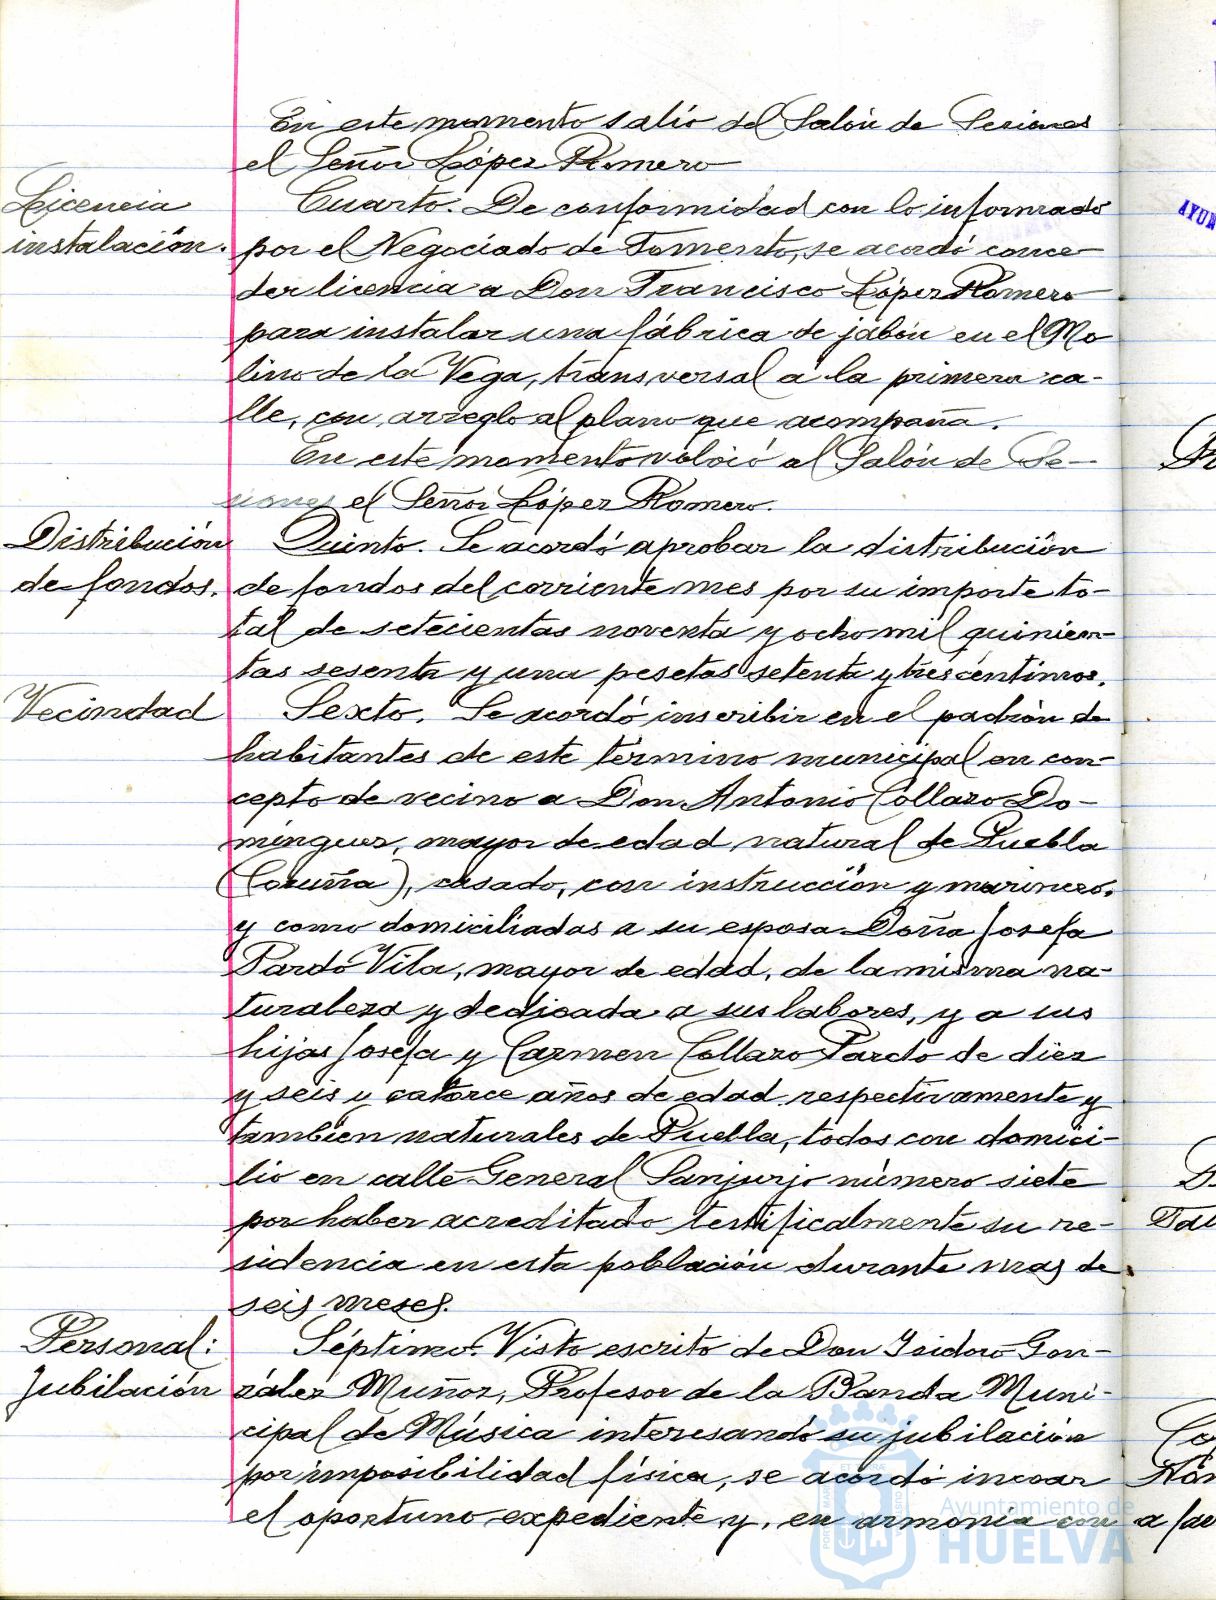 En este momento salió del Salón de Sesiones
el Señor López Romero
Licencia
instalación.
Cuarto. De conformidad con lo informado
por el Negociado de Fomento, se acordó conce-
der licencia a Don Francisco López Romero
para instalar una fábrica de jabón en el Mo
lino de la Vega, transversal a la primera ca-
lle, con arreglo al plano que acompaña.
En este momento volvió al Salón de Se-
siones el Señor López Romero.
Distribución
de fondos.
Quinto. Se acordó aprobar la distribución
de fondos del corriente mes por su importe to-
tal de setecientas noventa y ocho mil quinien-
tas sesenta y una pesetas setenta y tres centimos.
Vecindad
Sexto. Se acordó inscribir en el padrón de
habitantes de este término municipal en con-
cepto de vecino a Don Antonio Collazo Do-
minguez, mayor de edad natural de Puebla
(Coruña), casado, con instrucción y marinero,
y como domiciliadas a su esposa Doña Josefa
Pardo Vila, mayor de edad, de la misma na-
turaleza y dedicada a sus labores, y a sus
hijas Josefa y Carmen Collazo Pardo de diez
y seis y catorce años de edad respectivamente y
tambien naturales de Puebla, todos con domici-
lio en calle General Sanjurjo número siete
por haber acreditado testificalmente su re-
sidencia en esta población durante mas de
seis meses.
Personal:
Jubilación
Séptimo. Visto escrito de Don Isidoro Gon-
zález Muñoz, Profesor de la Banda Muni-
cipal de Música interesando su jubilación
por imposibilidad física, se acordó incoar
el oportuno expediente y, en armonía con
Ayuntamiento de
HUELVA